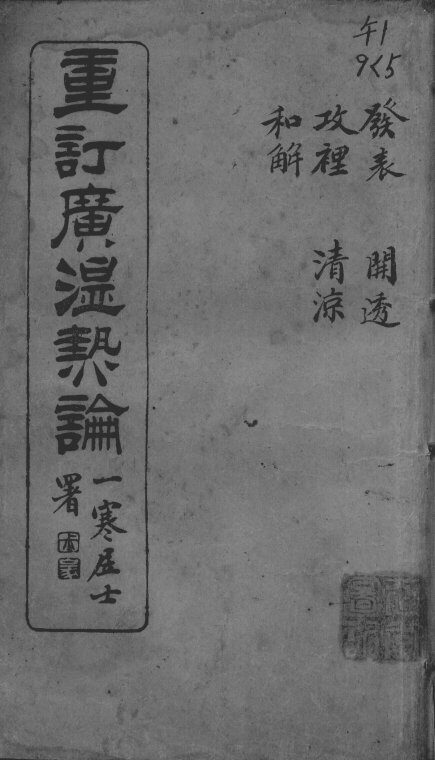 午1
9〈5
發表 開透
攻裡 清涼
和解
重訂廣温熱論
一寒居士
署